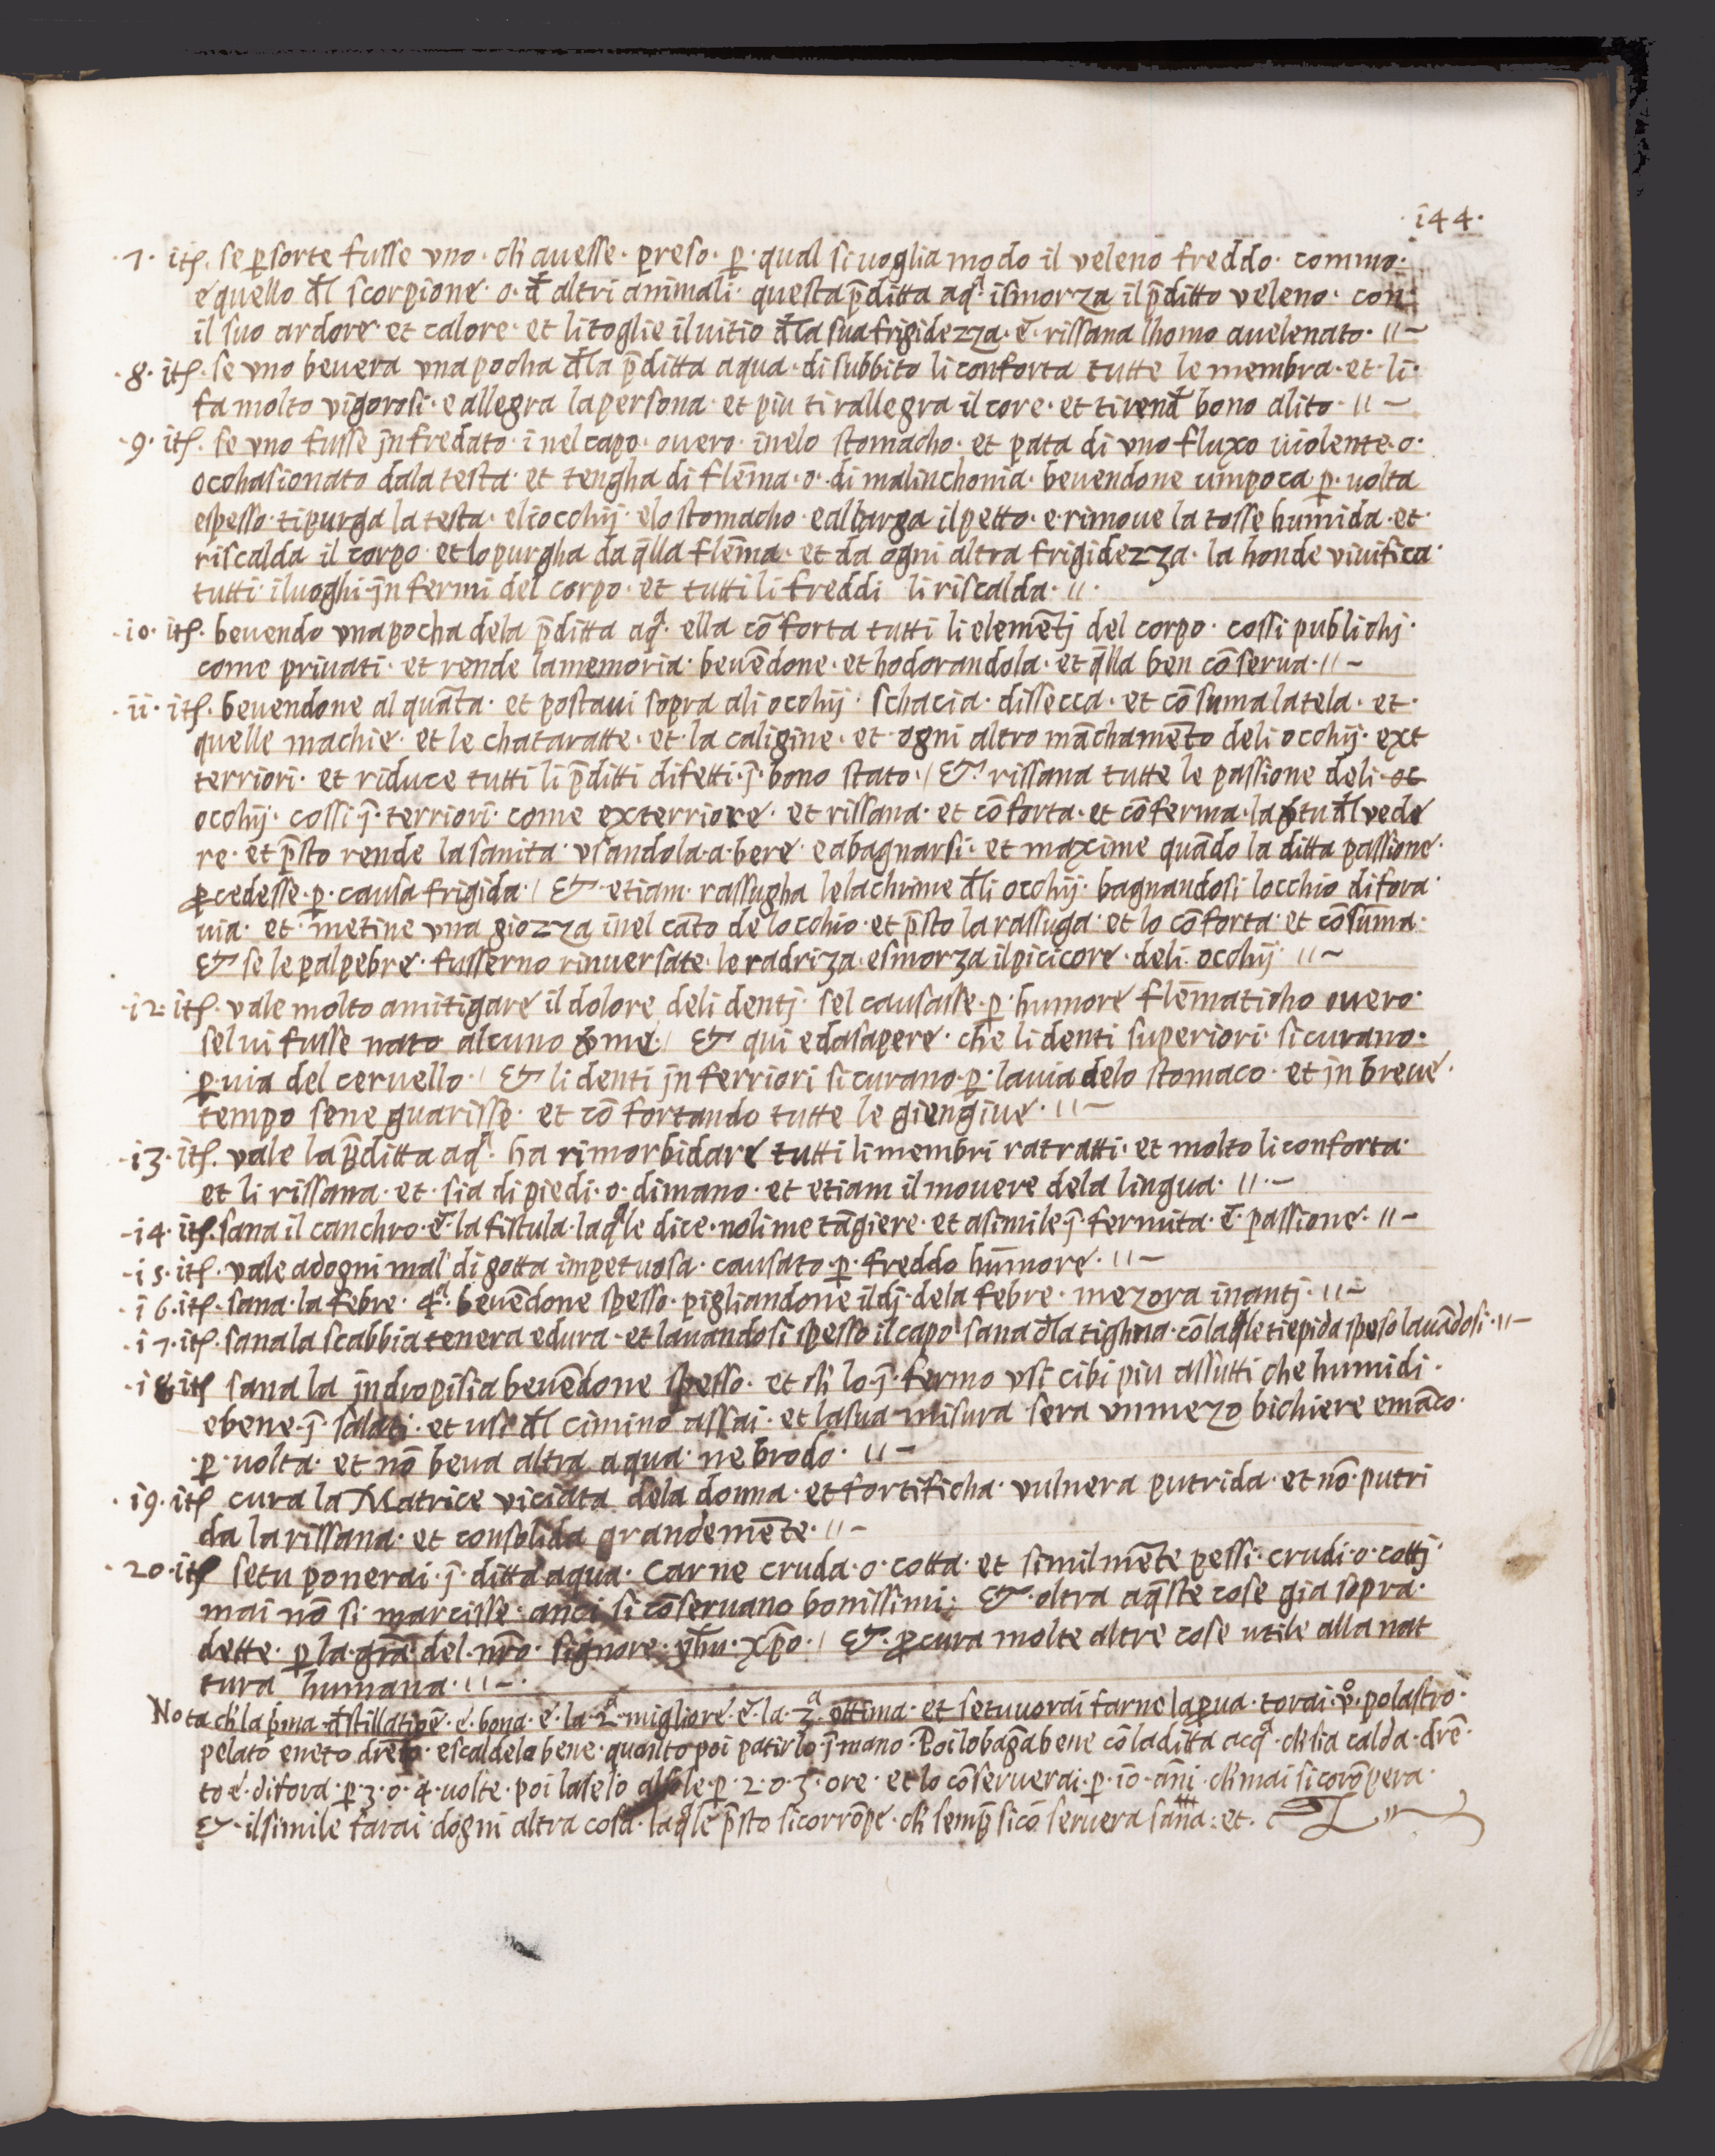 ·i44·
·7· itʃ. se ꝑ sorte fusse vno· ch̄ auesse· preso· ꝑ· qual si uoglia modo il veleno freddo· commo·
e quello đl scorpione· o· đ altri animali· questa p̄ditta aqᵃ ismorza il p̄ditto veleno· con
il suo ardore· et calore· et li toglie il uitio đla sua frigidezza· e· rissana lhomo auelenato· //–
·8· itʃ· se vno beuera vna pocha đla p̄ditta aqua· di subbito li conforta tutte le membra· et· li·
fa molto vigorosi· e allegra la persona· et piu ti rallegra il core· et ti rend̄ bono alito· //–
·9· itʃ. se vno fusse jnfredato· i nel capo· ouero· inelo stomacho· et pata di vno fluxo uiolente· o·
ocohasionato dala testa· et tengha di flēma· o· di malinchonia· beuendone umpoca· ꝑ· uolta
espesso· ti purga la testa· e li occhij· elo stomacho· e allarga il petto· e rimoue la tosse humida· et·
riscalda il corpo· et lo purgha da q̄lla flēma· et da ogni altra frigidezza· la honde viuifica·
tutti i luoghi jnfermi del corpo· et tutti li freddi li riscalda· //·
·io· itʃ· beuendo vna pocha dela p̄ditta aqᵃ· ella cō forta tutti li elemētj del corpo· cossi publichj·
come priuati· et rende la memoria· beuēdone· et hodorandola· et q̄lla ben cōserua· //–
·ii· itʃ. beuendone al quāta· et postaui sopra ali occhij· schacia· dissecca· et cōsuma la tela· et·
quelle machie· et le chataratte· et· la caligine· et· ogni altro māchamēto deli occhij· ext
terriori· et riduce tutti li p̄ditti difetti· j̄· bono stato· / &· rissana tutte le passione deli· oc
occhij· cossi j̄· terriori· come exterriore· et rissana· et cōforta· et cōferma· la ꝟtu đl vede
re· et p̄sto rende la sanita· vsandola· a· bere· e abagnarsi· et maxime quādo la ditta passione·
ꝓcedesse· ꝑ· causa frigida· / & etiam· rassugha le lachrime đli occhij· bagnandosi locchio di fora·
uia· et· metine vna giozza inel cāto de locchio· et p̄sto la rassuga· et lo cōforta· et cōsuma·
& se le palpebre· fusserno rinuersate· le radriza· esmorza il picicore· deli· occhij· //–
·i2· itʃ· vale molto amitigare il dolore deli dentj· sel causasse· ꝑ· humore flēmaticho ouero·
sel ui fusse nato alcuno ꝟme· / & qui e da sapere· che li denti superiori· si curano·
ꝑ· uia del ceruello· / & li denti jnferriori si curano· ꝑ· la uia delo stomaco· et jn breue·
tempo sene guarisse· et cō fortando tutte le giengiue· //–
·i3· itʃ. vale la p̄ditta aqᵃ· ha rimorbidare tutti li membri ratratti· et molto li conforta·
et li rissana· et· sia di piedi· o· di mano· et etiam il mouere dela lingua· //·–
·i4· itʃ. sana il canchro· e· la fistula· laq̄le dice· noli me tāgiere· et a simile j̄· fermita· e· passione· //–
·i5· itʃ· vale ad ogni mal di gotta impetuosa· causato· ꝑ· freddo hūmore· //–
·i6· itʃ. sana· la febre· 4ᵃ· beuēdone spesso· pigliandone il dj· dela febre· mezora inantj· //–
·i7· itʃ. sana la scabbia tenera e dura· et lauandosi spesso il capo sana đla tighna· cō laq̄le tiepida speso lauādosi· //–
·i8 itʃ sana la jndropisia beuēdone spesso· et ch̄ lo j̄· fermo vsi cibi piu assutti che humidi·
e bene· j̄· salati· et usi đl cimino assai· et la sua misura sera vn mezo bichiere e māco·
·ꝑ· uolta· et nō beua altra aqua· ne brodo· //–
·i9· itʃ cura la Matrice viciata dela donna· et fortificha· vulnera putrida· et nō· putri
da la rissana· et consolida grandemēte· //–
·20· itʃ se tu ponerai· j̄· ditta aqua· carne cruda· o· cotta· et similmēte pessi· crudi· o· cottj·
mai nō si marcisse· anci si cōseruano bonissimi· &· oltra aq̄ste cose gia sopra·
dette· ꝑ la· gr̄a del· nr̄o· signore· yh̄u· xp̄o· / &· ꝓcura molte altre cose utile alla nat
tura humana· //–·
Nota ch̄ la p̄ma đstillatiōe· e· bona· e· la· 2ᵃ· migliore· e· la· 3ᵃ· ottima· et se tu uorai farne la ꝓua· torai· v̊· polastro·
pelato e neto drēto· e scaldela bene· quanto poi patirlo j̄ mano· Poi lo bagā bene cō la ditta acqᵃ· ch̄ sia calda· drē·
to e· di fora· ꝑ· 3· o· 4· uolte· poi laselo al sole· ꝑ· 2· o· 3· ore· et lo cōseruerai· ꝑ· io· āni· ch̄ mai si corōpera·
&· il simile farai dogni altra cosa· laq̄le p̄sto si corrōpe· ch̄ semp̄ si cō seruera sana· et·